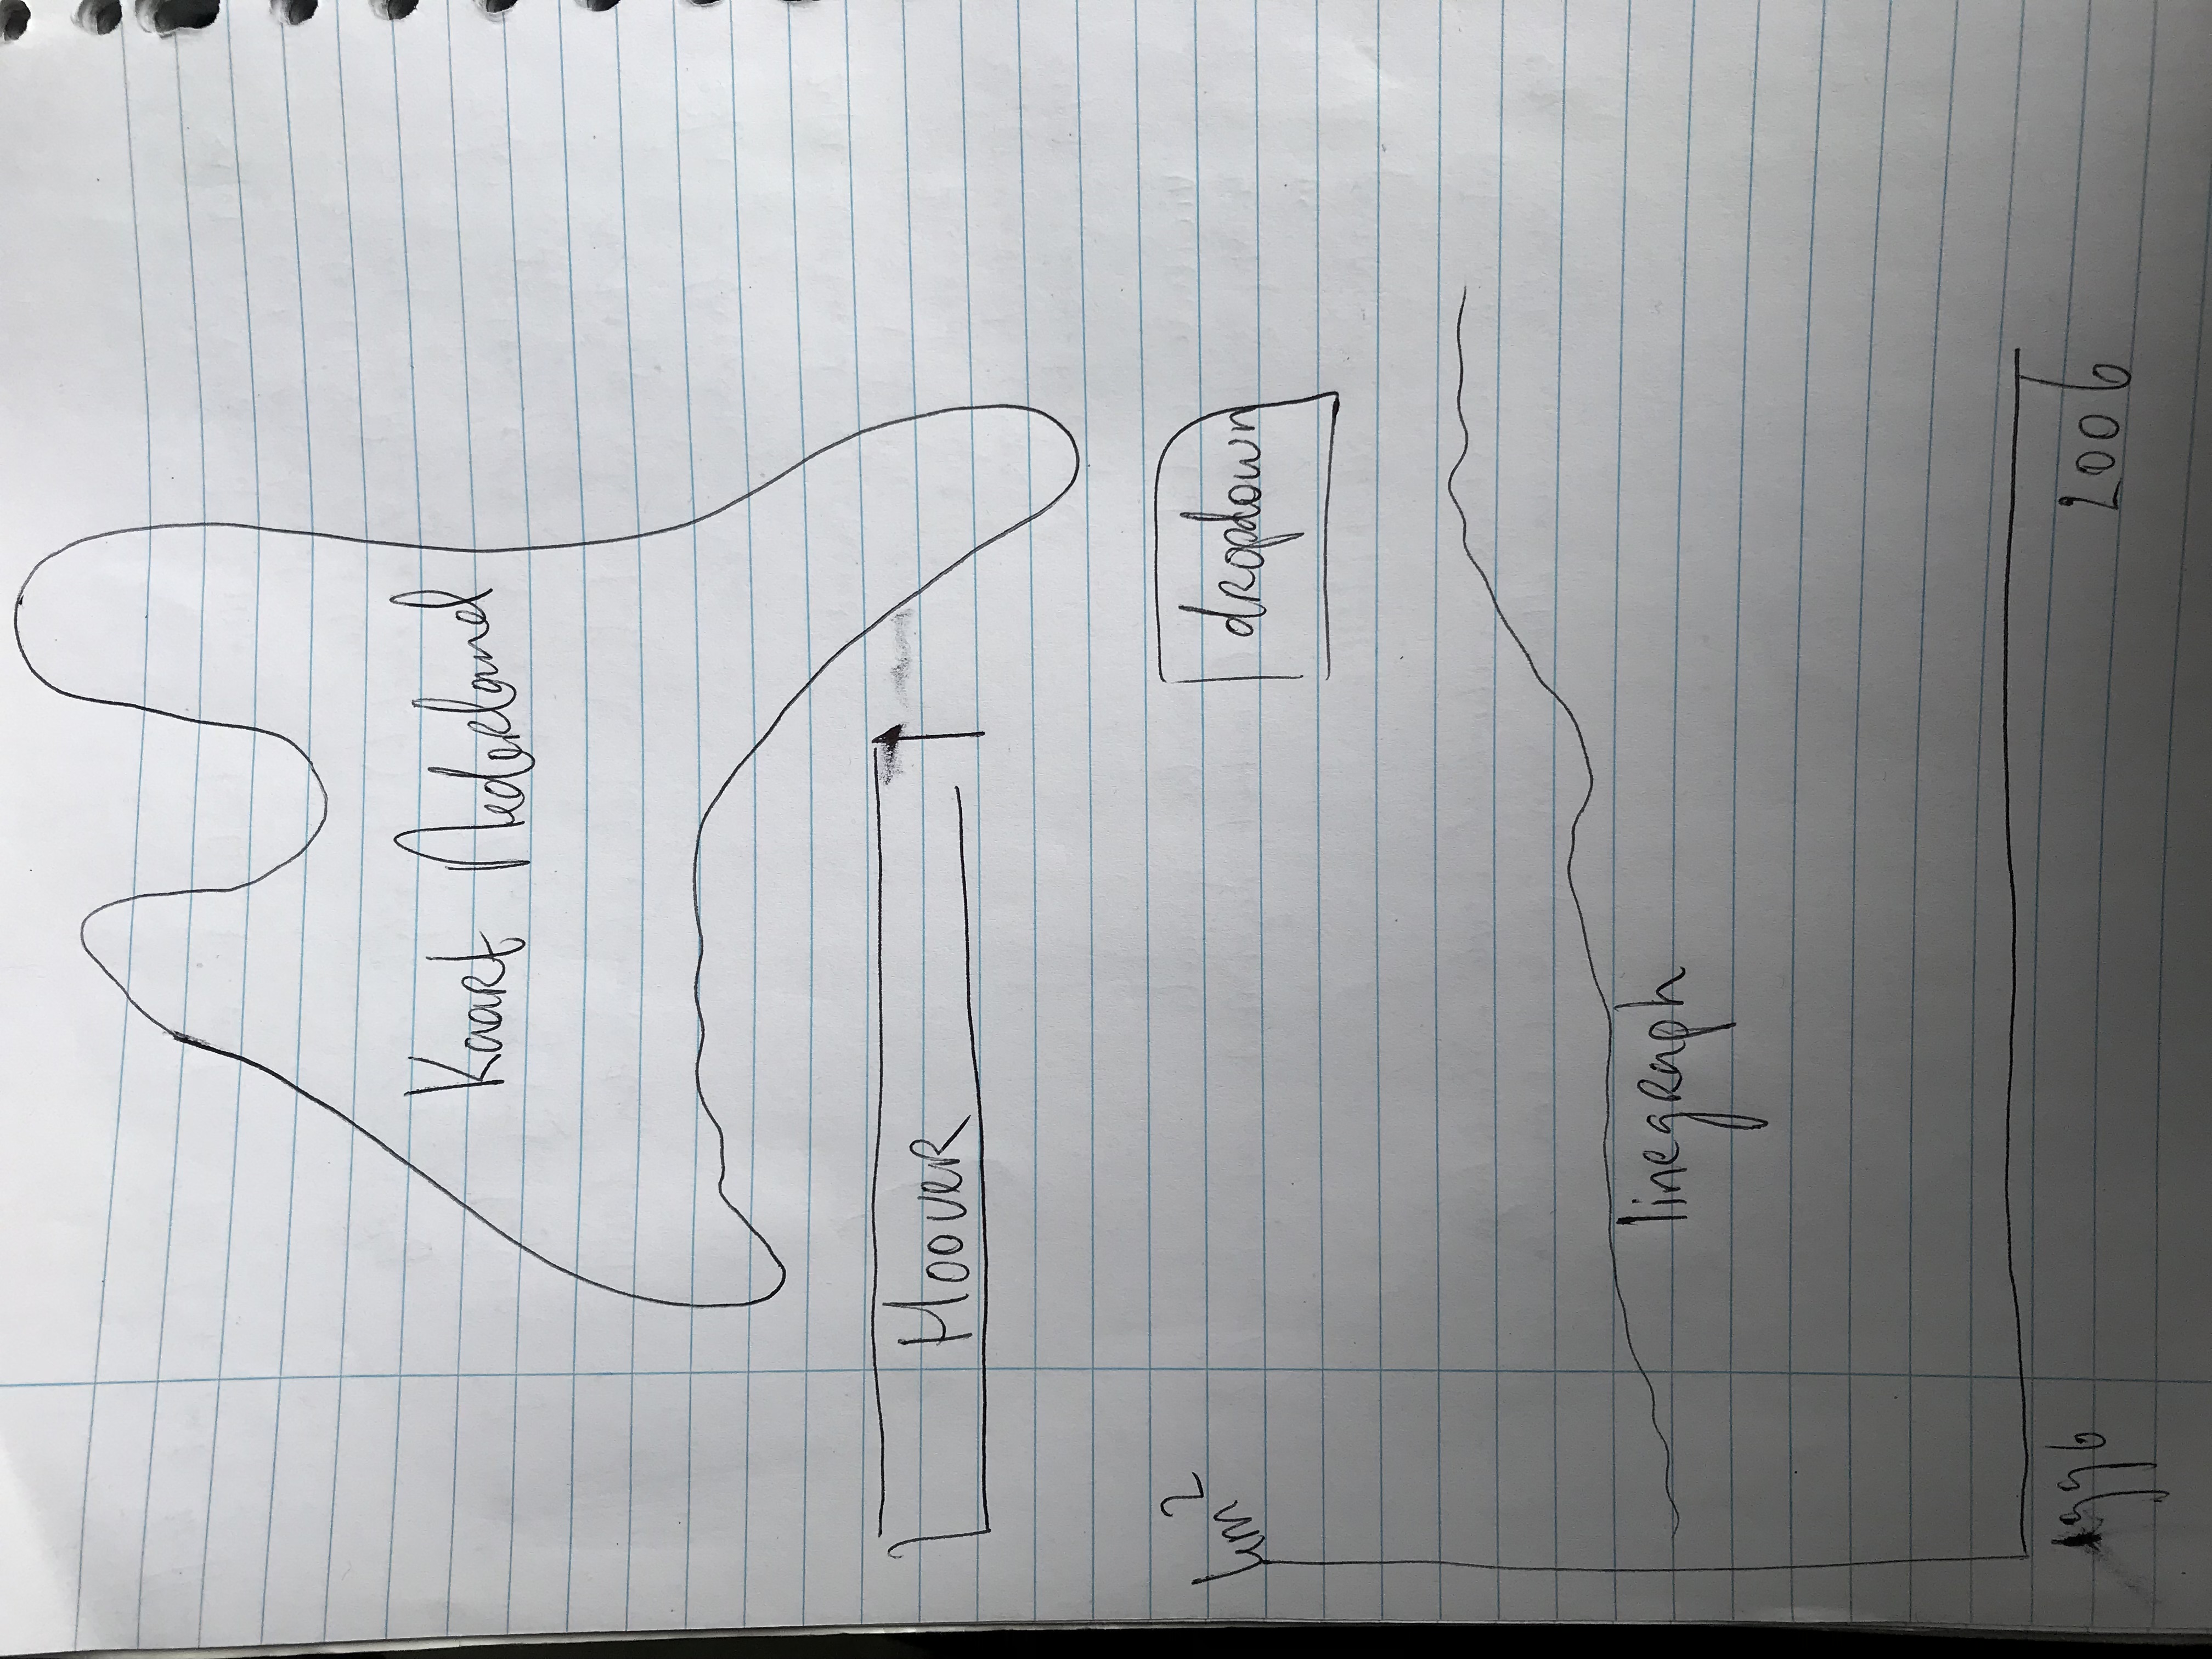 Kaart Nederland
Hoover
km²
dropdown
linegraph
1996
2006